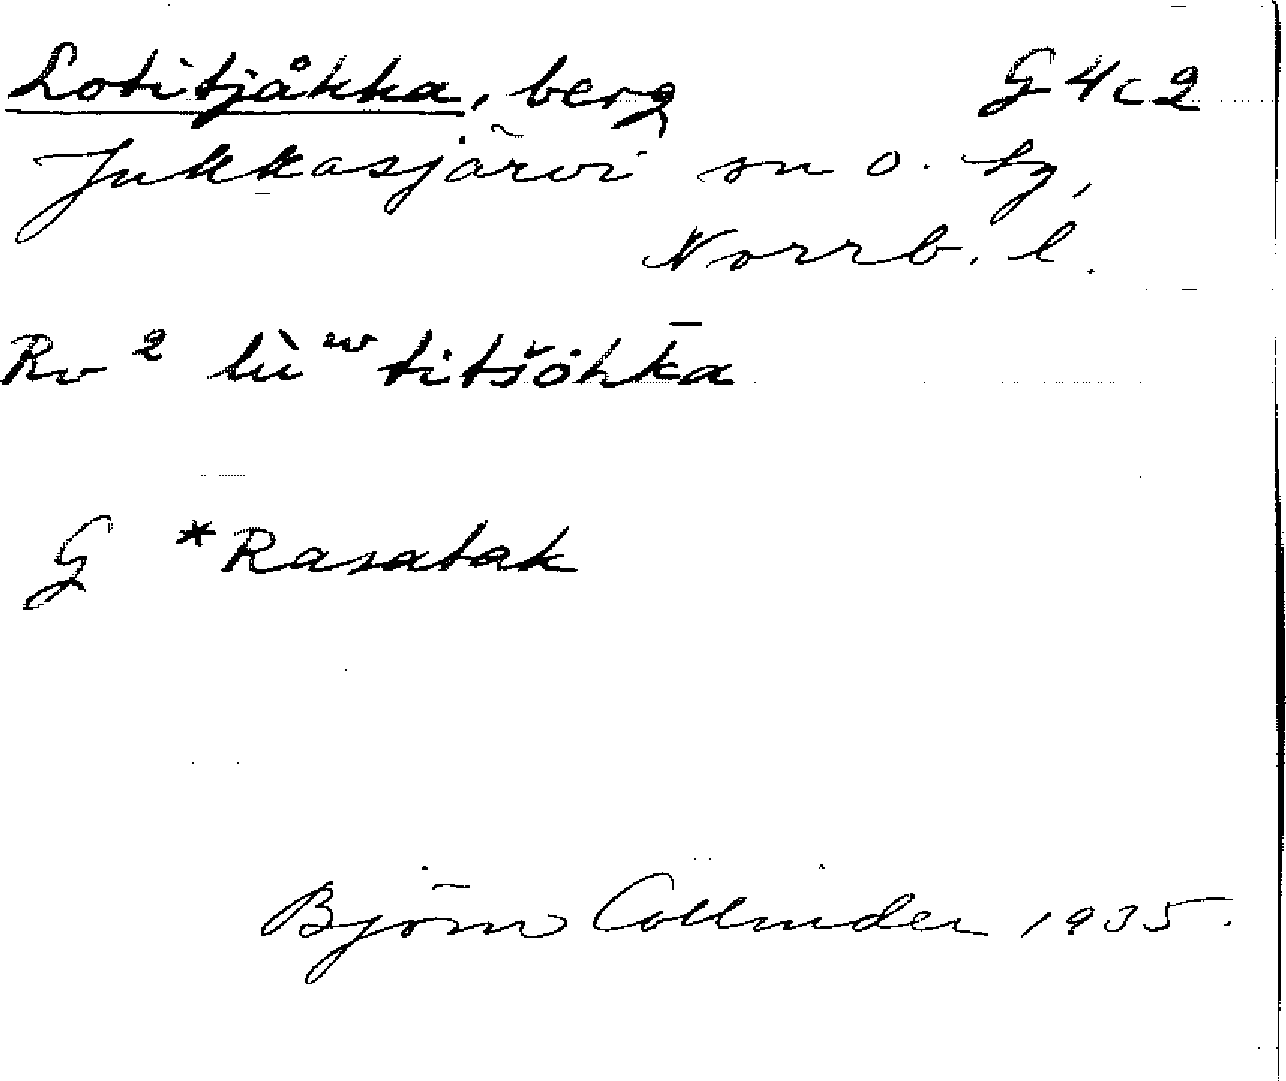 Lotitjåkka, berg G 4 c 2
Jukkasjärvi sn o. tg,
Norrb. l.
Rv 2 lùʷtitšòhk̄a
G *Rasatak
Björn Collinder 1935.